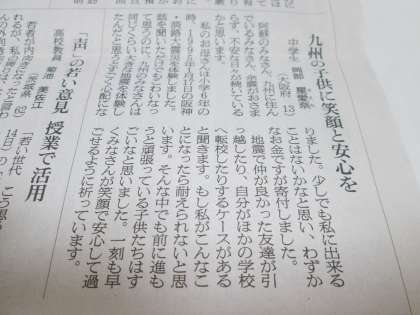 九州の子供に笑顔と安心を
中学生 岡部
(大阪府 13)
阿蘇のみなさん、九州に住ん
でいるみなさん、余震がおさま
らず、不安な日が続いている
私のお母さんは小学6年の
時、1995年1月17日の阪神
・淡路大震災を体験しました。
話を聞いただけでもこわいなっ
て思うのに、九州のみなさんは
同じくらい大きな地震を体験し
たんだと思うとすごく心配にな
りました。少しでも私に出来る
ことはないかなと思い、わずか
なお金ですが寄付しました。
地震で仲が良かった友達が引
っ越したり、自分がほかの学校
へ転校したりするケースがある
と聞きます。もし私がこんなこ
とになったら耐えられないと思
います。そんな中でも前に進も
うと頑張っている子供たちはす
ごいなと思いました。一刻も早
くみなさんが笑顔で安心して過
ごせるように祈っています。
「声」の若い意見 授業で活用
高校教員 菊池 美佐江
「若い世代
14日）の